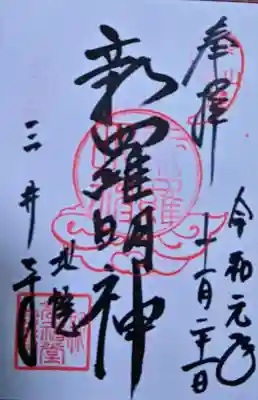 奉拝
令和元年
十一月二十二日
新羅明神
三井寺
北院